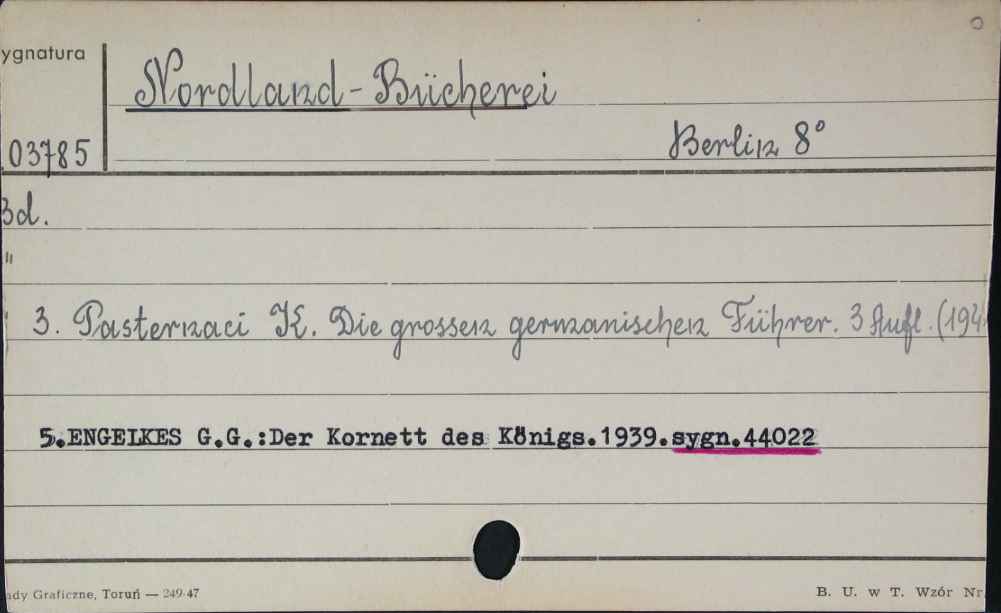 ygnatura
Nordland-Bücherei
03785
Berlin 8°
Bd.
"
3. Pasternaci K. Die grossen germanischen Führer. 3 Aufl. (194
5.ENGELKES G.G.:Der Kornett des Königs.1939.sygn.44022
ady Graficzne, Toruń — 249-47
B. U. w T. Wzór Nr